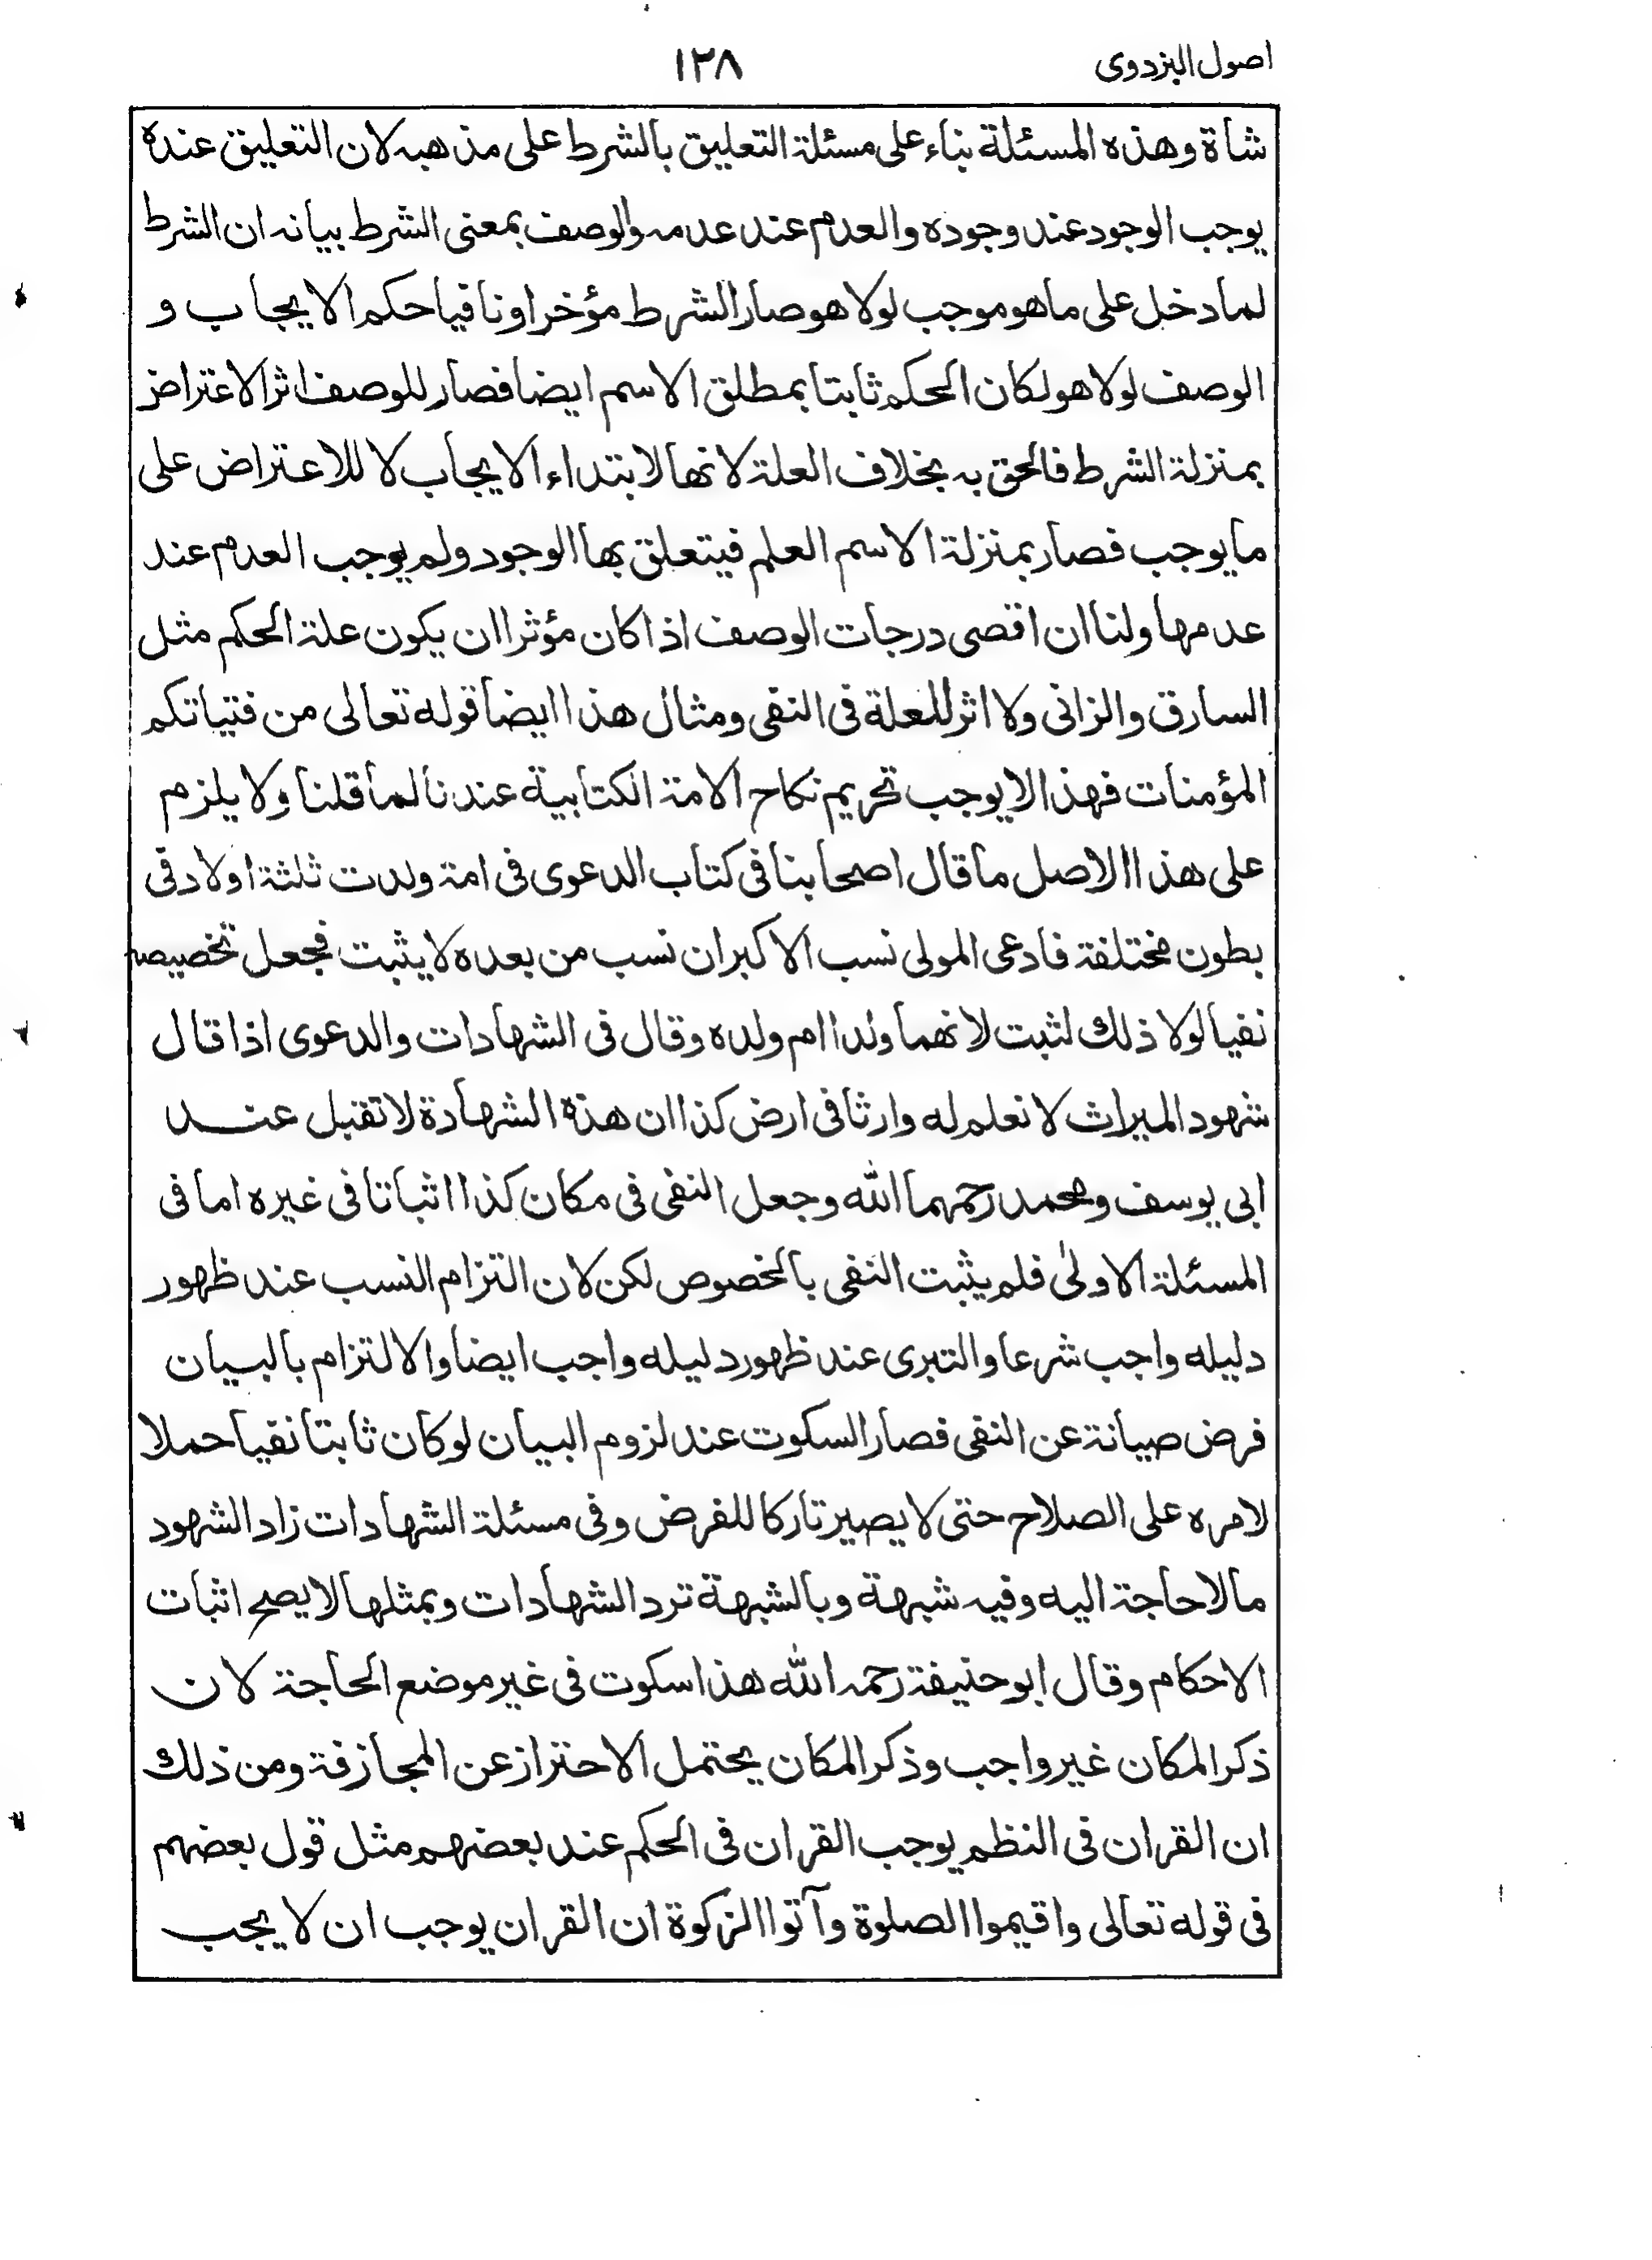 اصول البزدوى
١٣٨
شاة وهذه المسئلة بناء على مسئلة التعليق بالشرط على مذهبه لان التعليق عنده
يوجب الوجود عند وجوده والعدم عند عدمه والوصف بمعنى الشرط بيانه ان الشرط
لما دخل على ما هو موجب لولا هو صار الشرط مؤخرا ونافيا حكم الايجاب و
الوصف لولا هو لكان الحكم ثابتا بمطلق الاسم ايضا فصار للوصف اثر الاعتراض
بمنزلة الشرط فالحق به بخلاف العلة لانها لابتداء الايجاب لا للاعتراض على
ما يوجب فصار بمنزلة الاسم العلم فيتعلق بها الوجود ولم يوجب العدم عند
عدمها ولنا ان اقصى درجات الوصف اذا كان مؤثرا ان يكون علة الحكم مثل
السارق والزانى ولا اثر للعلة فى النفى ومثال هذا ايضا قوله تعالى من فتياتكم
المؤمنات فهذا لا يوجب تحريم نكاح الامة الكتابية عندنا لما قلنا ولا يلزم
على هذا الاصل ما قال اصحابنا فى كتاب الدعوى فى امة ولدت ثلثة اولاد فى
بطون مختلفة فادعى المولى نسب الاكبر ان نسب من بعده لا يثبت فجعل تخصيصه
نفيا لولا ذلك لثبت لانهما ولدا ام ولده وقال فى الشهادات والدعوى اذا قال
شهود الميراث لا نعلم له وارثا فى ارض كذا ان هذه الشهادة لا تقبل عند
ابى يوسف ومحمد رحمهما الله وجعل النفى فى مكان كذا اثباتا فى غيره اما فى
المسئلة الاولىٰ فلم يثبت النفى بالخصوص لكن لان التزام النسب عند ظهور
دليله واجب شرعا والتبرى عند ظهور دليله واجب ايضا والالتزام بالبيان
فرض صيانة عن النفى فصار السكوت عند لزوم البيان لو كان ثابتا نفيا حملا
لامره على الصلاح حتى لا يصير تاركا للفرض وفى مسئلة الشهادات زاد الشهود
ما لا حاجة اليه وفيه شبهة وبالشبهة ترد الشهادات وبمثلها لا يصح اثبات
الاحكام وقال ابو حنيفة رحمه الله هذا سكوت فى غير موضع الحاجة لان
ذكر المكان غير واجب وذكر المكان يحتمل الاحتراز عن المجازفة ومن ذلك
ان القران فى النظم يوجب القران فى الحكم عند بعضهم مثل قول بعضهم
فى قوله تعالى واقيموا الصلوة وآتوا الزكوة ان القران يوجب ان لا يجب